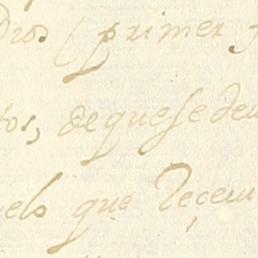 dros (primer
tos, de que se de
elo que Reçeui